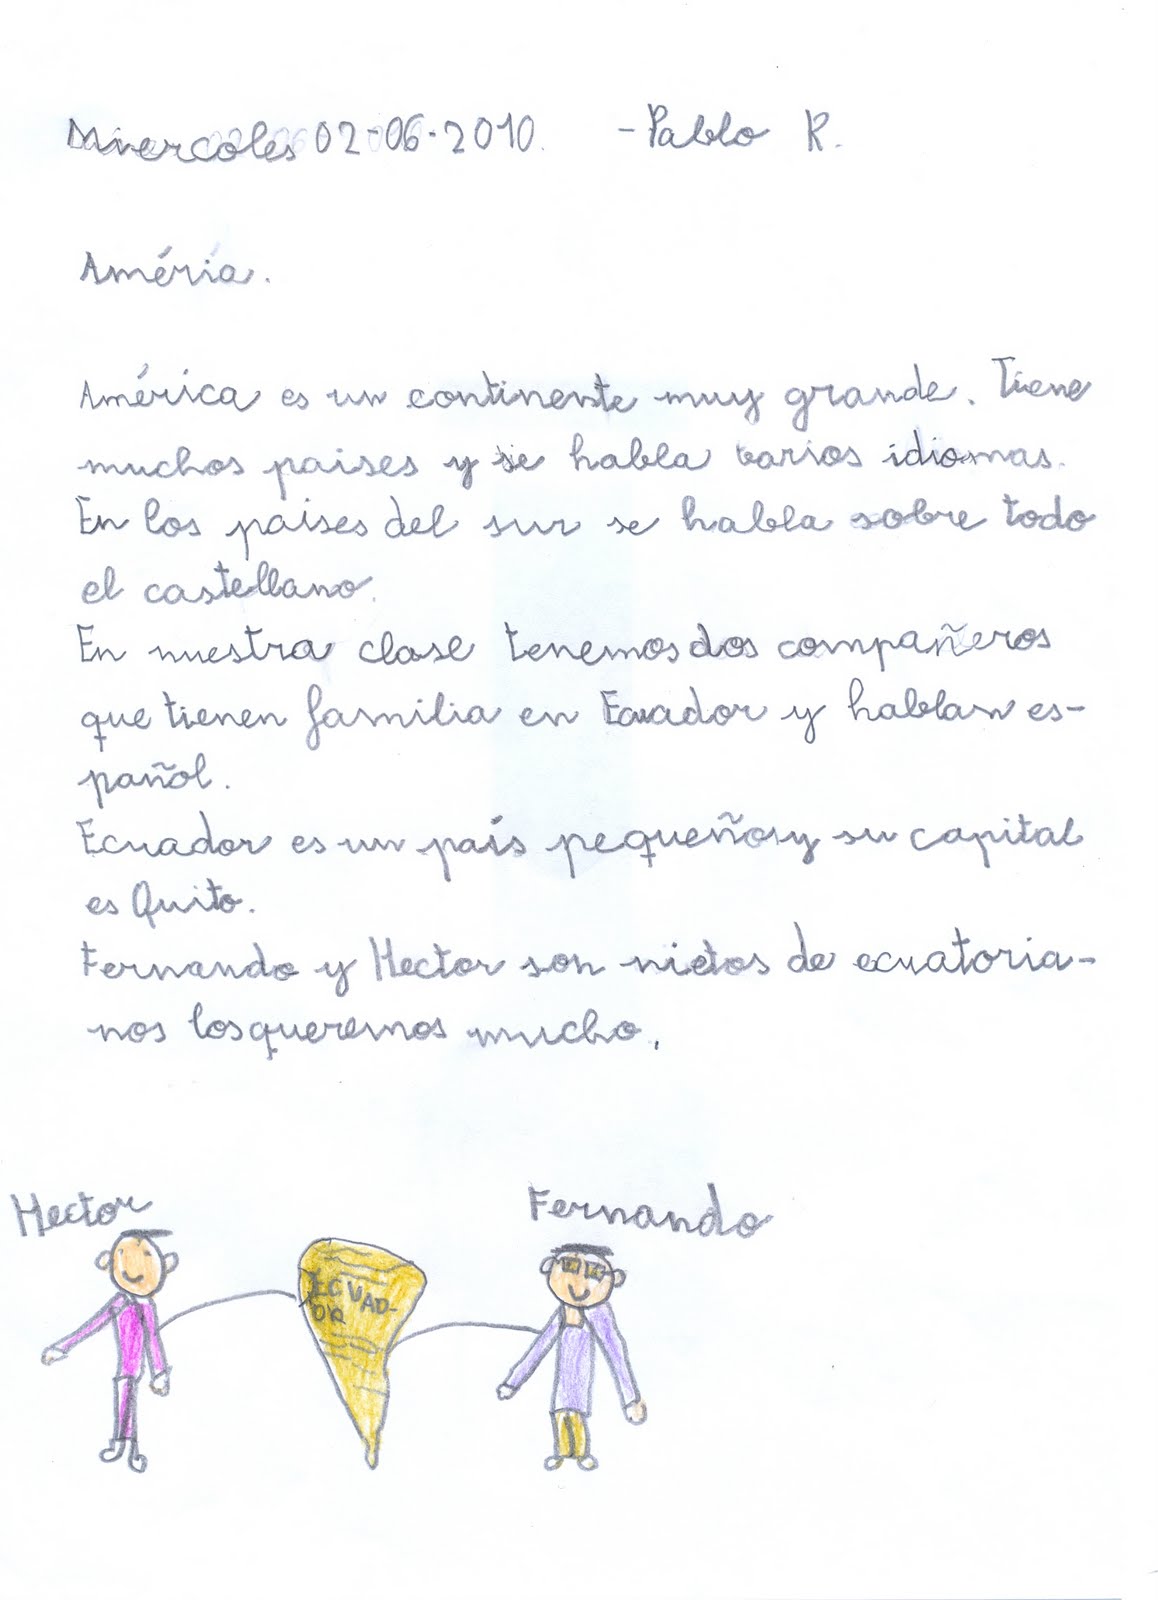 Miercoles 02-06-2010. -Pablo R.
Améria.
América es un continente muy grande. Tiene
muchos paises y se habla barios idiomas.
En los paises del sur se habla sobre todo
el castellano.
En nuestra clase tenemos dos compañeros
que tienen familia en Ecuador y hablan es-
pañol.
Ecuador es un país pequeño y su capital
es Quito.
Fernando y Hector son nietos de ecuatoria-
nos los queremos mucho.
Hector
Fernando
ECUAD-
OR